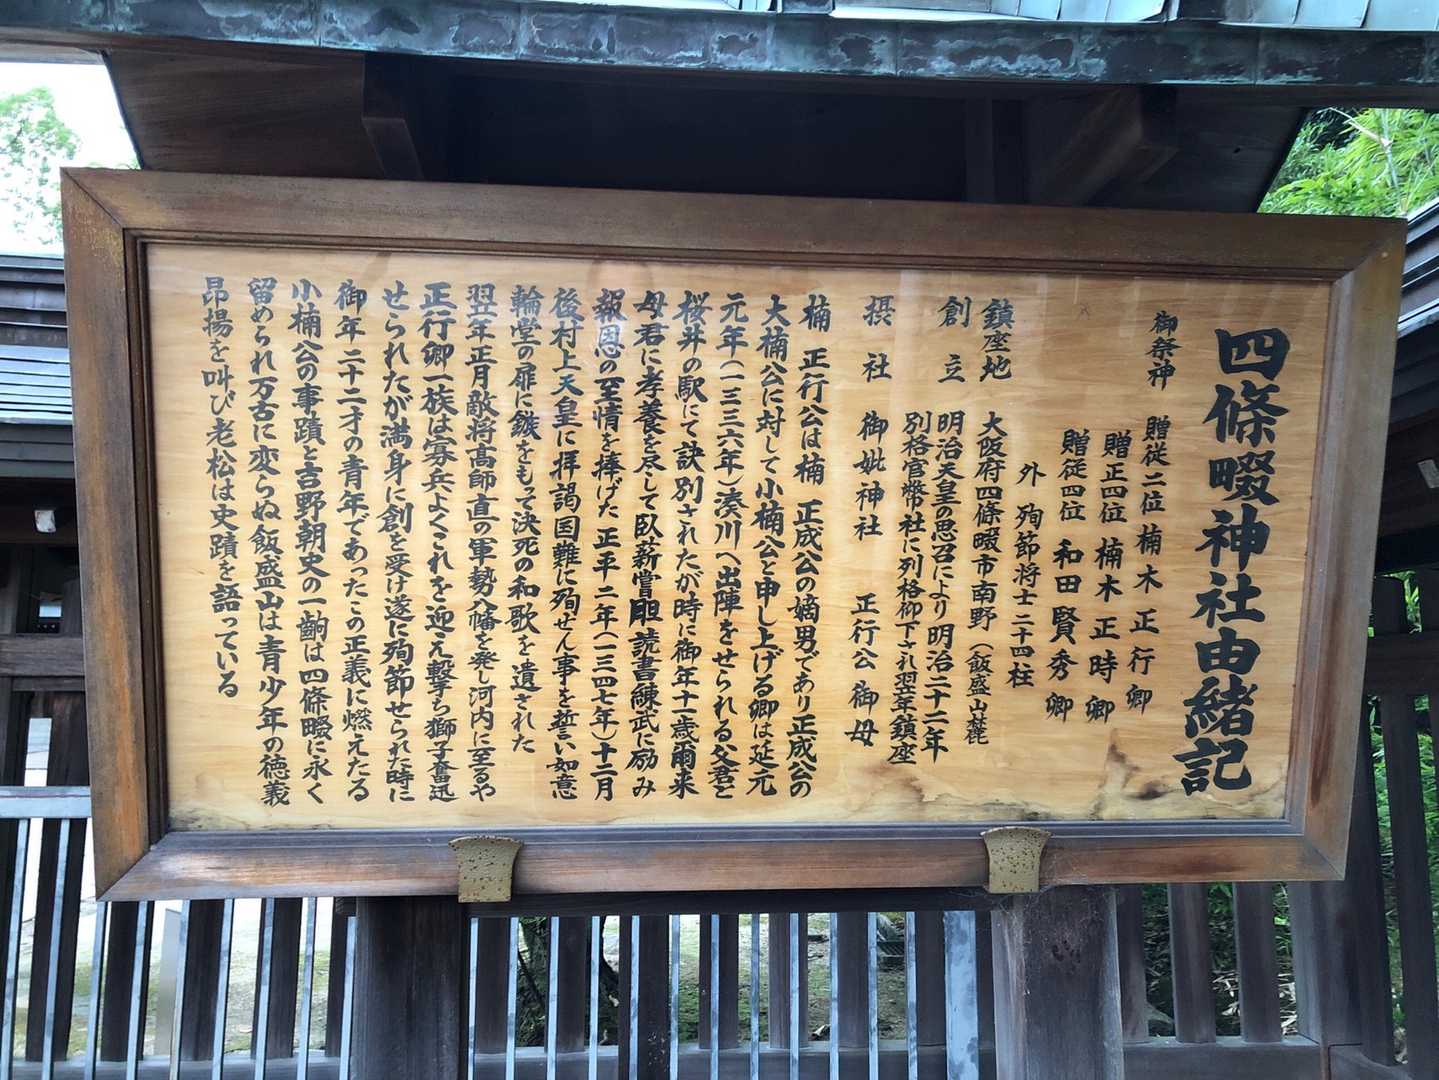 四條畷神社由緒記
御祭神 贈従二位 楠木 正行 卿
贈正四位 楠木 正時 卿
贈従四位 和田 賢秀 卿
外 殉節将士二十四柱
鎮座地 大阪府四條畷市南野(飯盛山麓
創立 明治天皇の思召により明治二十二年
別格官幣社に列格仰下され翌年鎮座
摂社 御妣神社 正行公 御母
楠 正行公は楠 正成公の嫡男であり正成公の
大楠公に対して小楠公と申し上げる卿は延元
元年(一三三六年)湊川へ出陣をせられる父君と
桜井の駅にて訣別されたが時に御年十一歳爾来
母君に孝養を尽して臥薪嘗胆読書練武に励み
報恩の至情を捧げた 正平二年(一三四七年)十二月
後村上天皇に拝謁国難に殉ぜん事を誓い如意
輪堂の扉に鏃をもって決死の和歌を遺された
翌年正月敵将高師直の軍勢八幡を発し河内に至るや
正行卿一族は寡兵よくこれを迎え撃ち獅子奮迅
せられたが満身に創を受け遂に殉節せられた時に
御年二十二才の青年であったこの正義に燃えたる
小楠公の事蹟と吉野朝史の一齣は四條畷に永く
留められ万古に変らぬ飯盛山は青少年の徳義
昂揚を叫び老松は史蹟を語っている